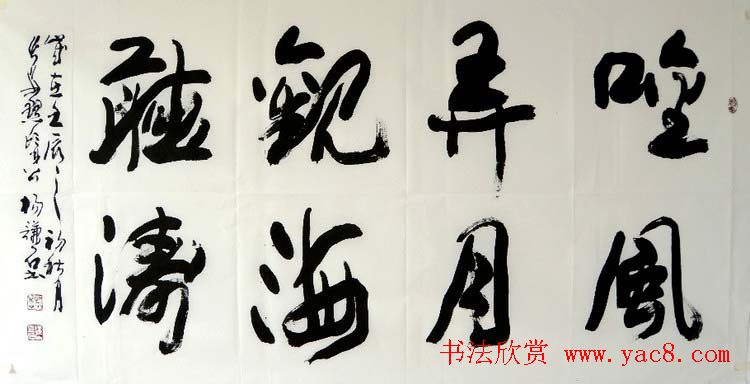 唫風
弄月
觀海
聽濤
歲在壬辰之初秋月
楊謙書
书法欣赏 www.yac8.com